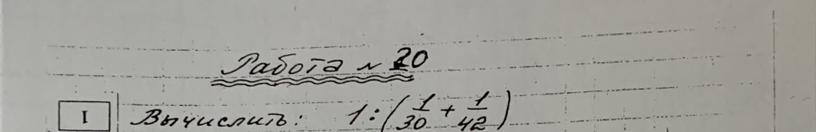 Работа № 20
I Вычислить: 1 : (1/30 + 1/42)